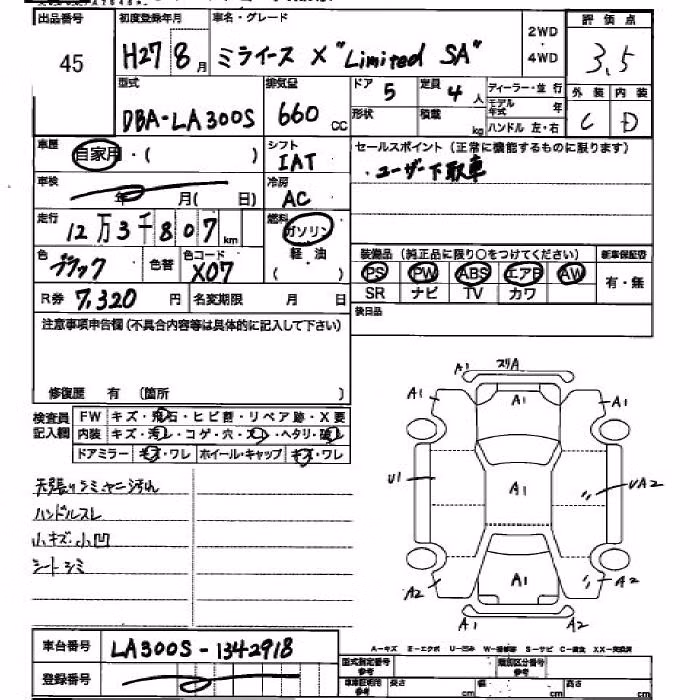 出品番号 初度登録年月 車名・グレード 評価点
45 H27 8月 ミライース X "Limited SA" 2WD ・ 4WD 3.5
型式 排気量 ドア 5 定員 4人 ディーラー・並行 外装 内装
DBA-LA300S 660 CC 形状 積載 kg モデル年式 年 C D
ハンドル 左・右
車歴 自家用・( ) シフト IAT セールスポイント (正常に機能するものに限ります)
車検 年 月( 日) 冷房 AC ・ユーザー下取車
走行 12万3千807km 燃料 ガソリン
軽・油
( )
色 ブラック 色替 色コード X07 装備品 (純正品に限り○をつけてください) 新車保証書
PS PW ABS エアB AW 有・無
SR ナビ TV カワ
R券 7,320円 名変期限 月 日 後日品
注意事項申告欄 (不具合内容等は具体的に記入して下さい)
修復歴 有 〔箇所 〕
検査員記入欄 FW キズ・飛石・ヒビ割・リペア跡・X要
内装 キズ・汚レ・コゲ・穴・スレ・ヘタリ・破レ
ドアミラー キズ・ワレ ホイール・キャップ キズ・ワレ
天張りシミヤニ汚れ
ハンドルスレ
小キズ・小凹
シートシミ
A1 スリA
A1 A1 A1
U1 A1 UA2
A2 A1 A2
A1 A1
A-キズ E-エクボ U-凹み W-補修跡 S-サビ C-腐食 XX-交換済
車台番号 LA300S-1342918 型式指定番号 参考 類別区分番号 参考
登録番号 車庫証明用 参考 長さ cm 幅 cm 高さ cm